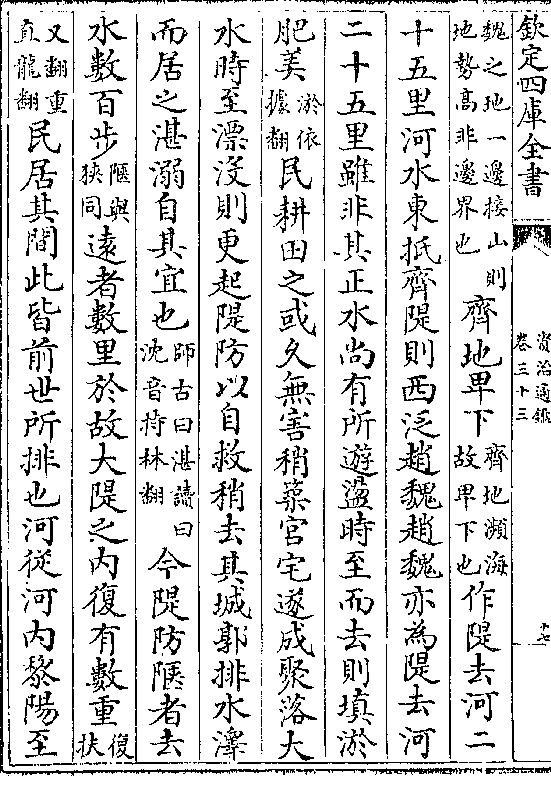 欽定四庫全書 資治通鑑 卷三十三 十七
魏之地一邊接山則地勢高非邊界也齊地卑下齊地瀕海故卑下也作隄去河二
十五里河水東抵齊隄則西泛趙魏趙魏亦為隄去河
二十五里雖非其正水尚有所遊盪時至而去則填淤
肥美淤依據翻民耕田之或久無害稍築宫宅遂成聚落大
水時至漂没則更起隄防以自救稍去其城郭排水澤
而居之湛溺自其宜也師古曰湛讀曰沈音持林翻今隄防陿者去
水數百步陿與狹同遠者數里於故大隄之内復有數重復扶
又翻重直龍翻民居其間此皆前世所排也河從河内黎陽至